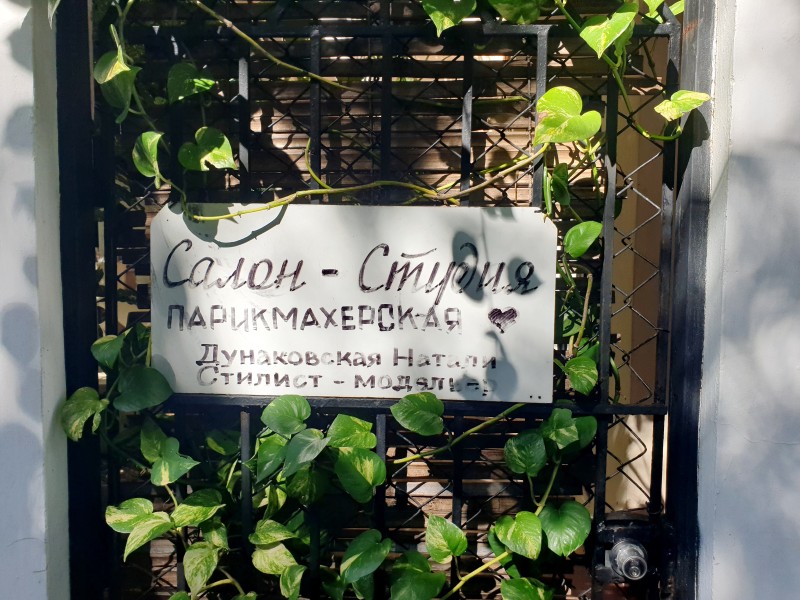 Салон - Студия
ПАРИКМАХЕРСКАЯ
Дунаковская Натали
Стилист - модельер